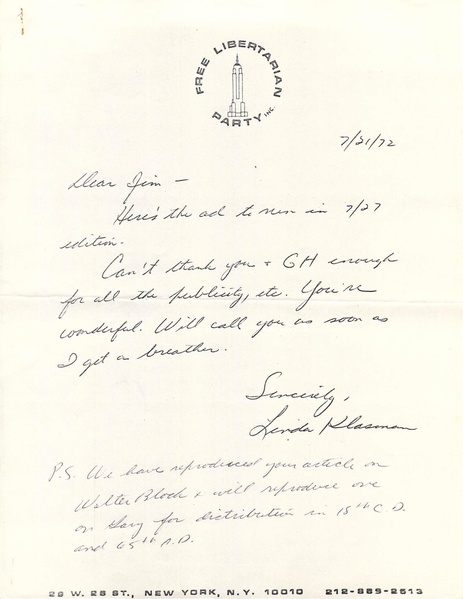 FREE LIBERTARIAN PARTY INC.
7/21/72
Dear Jim —
Here's the ad to run in 7/27
edition.
Can't thank you + GH enough
for all the publicity, etc. You're
wonderful. Will call you as soon as
I get a breather.
Sincerely,
Linda Klasman
P.S. We have reproduced your article on
Walter Block + will reproduce one
on Gary for distribution in 18th C.D.
and 65th A.D.
29 W. 28 ST., NEW YORK, N.Y. 10010 212-889-2513